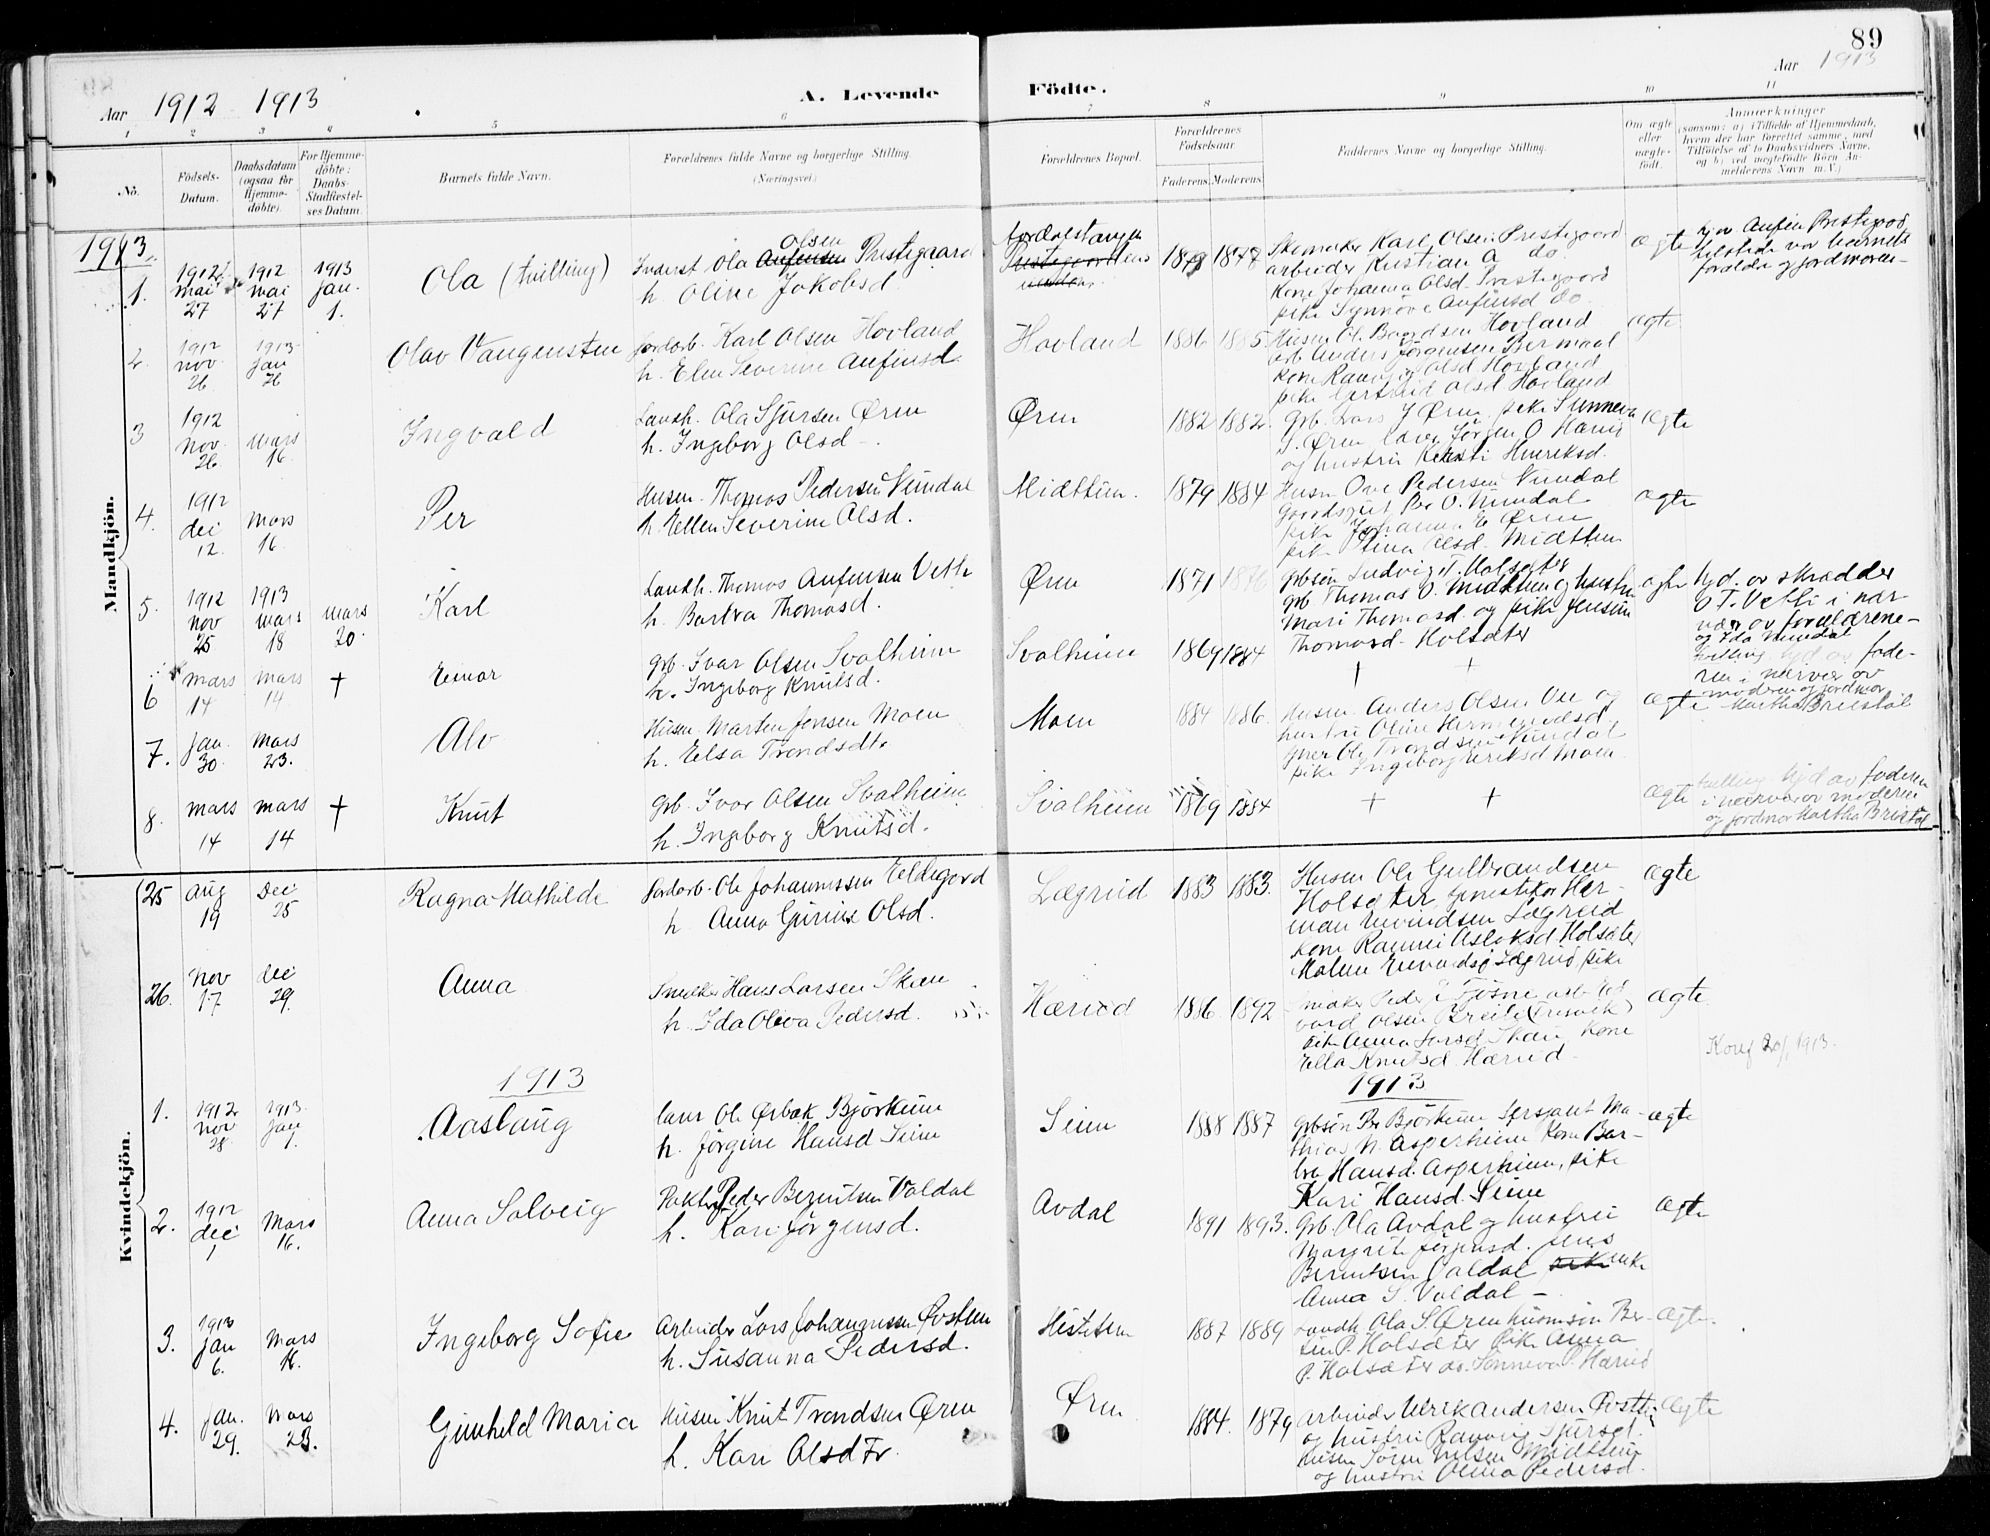 89
Aar 1912 - 1913
A. Levende Födte.
Aar 1913
1 2 3 4 5 6 7 8 9 10 11
No.
Födsels-Datum.
Daabsdatum (ogsaa for Hjemme-döbte).
For Hjemme-döbte: Daabs-Stadfæstel-ses Datum.
Barnets fulde Navn.
Forældrenes fulde Navne og borgerlige Stilling. (Næringsvei.)
Forældrenes Bopæl.
Forældrenes Födselsaar
Faderens. Moderens.
Faddernes Navne og borgerlige Stilling.
Om ægte eller uægte-födt.
Anmerkninger (saasom: a) i Tilfælde af Hjemmedaab, hvem der har forrettet samme, med Tilföielse af to Daabsvidners Navne, og b) ved uægtefödte Börn An-melderens Navn m. V.)
Mandkjön.
1913
1. 1912 mai 27 1912 mai 27 1913 jan. 1.
Ola (tvilling)
Inderst Ola Olsen Prestegaard
h. Oline Jakobsd.
1877
Skomaker Karl Olsen Prestegaard
arbeider Kristian A do.
Kone Johanna Olsd. Prestegaard
pike Synnøve Anfinsd do.
ægte
hj. av Anfin Prestegard
tilstede var barnets
forældre og jordmoren
2. 1912 nov. 26 1913 jan 26
Olav Vangensten
Jordarb. Karl Olsen Hovland
h. Elen Severine Anfinsd.
Hovland
1886 1885
Husm Ol. Baardsen Hovland
arb Anders Jörgensen Bermaal
kone Ranveig Olsd Hovland
pike Gertrud Olsd Hovland
ægte
3 1912 nov. 26 mars 16
Ingvald
Landh. Ola Sjursen Ørem
h. Ingeborg Olsd -
Øren
1882 1882
Grb. Lars J Øren, pike Sunneva
og hustru Kristi Henriksd.
ægte
4. 1912 dec 12. Mars 16.
Per
Husm. Thomas Pedersen Nundal
h. Ellen Severine Olsd.
Midttun.
1879 1884
Husm Ove Pedersen Nundal
Gaardsgut Per O. Nundal
pike Johanna E Øren
pike Stina Olsd. Midttun
ægte
5. 1912 nov 25 1913 mars 18 mars 20.
Karl
Landh. Thomas Anfinsen Vetti
h. Barbra Thomasd.
Øren
1871 1876
Grbsön Ludvig T. Holsæter
Grb Thomas O. Midttun og hustru
Mari Thomasd. og pike Jensine
Thomasd. Holsæter
ægte
hjd. av skrædder
O T. Vetti i nær
vær av forældrene -
og Ida Nundal
6 mars 14 mars 14 †
Einar
Grb. Ivar Olsen Svalheim
h. Ingeborg Knutsd.
Svalheim
1869 1884
† †
tvilling hjd av fade-
ren i nærvær av
moderen og jordmor
Martha Bristol
7. jan. 30. mars 23.
Alv
Husm Marten Jensen Moen
h. Elsa Trondsdtr
Moen
1884 1886.
Husm. Anders Olsen Vee og
hustru Oline Hermundsd
Ole Trondsen Nundal
pike Ingeborg Eriksd Moen
ægte
8. mars 14 mars 14 †
Knut
Grb. Ivar Olsen Svalheim
h. Ingeborg Knutsd.
Svalheim
1869 1884
† †
ægte
tvilling hjd av faderen
i nærvær av moderen
og jordmor Martha Bristol
Kvindekjön.
25 aug 19 dec 25
Ragna Mathilde
Jordarb. Ole Johannessen Eldegard
h. Anna Gurine Olsd.
Lægreid
1883 1883.
Husm Ole Gulbrandsen
Holsæter, Her-
man Eivindsen Lægreid
kone Rannei Aslaksd Holsæter
Malene Eivindsd Lægreid pike
ægte
26. nov 17 dec 29.
Anna
Smaker Hans Larsen Skau
h. Ida Oliva Pedersd.
Hæreid
1886. 1892
Pike Anna Larsd Skau Kone
Ella Knutsd Hæreid.
ægte
1913.
1913
1913
1. 1912 nov 28 1913 jan 1.
Aaslaug
Ol. Ørbæk Björkum
h. Jörgine Hansd Seim
Seim
1888 1887
Grbsön Per Björkum Sersjant Ma-
thias N. Asperheim Kone Bar-
bra Hansd. Asperheim, pike
Kari Hansd Seim
ægte
2. 1912 dec 1 Mars 16.
Anna Solveig
Peder Berntsen Voldal
h. Kari Jörgensd.
Avdal
1891 1893.
Grb. Ola Avdal og hustru
Margrete Jörgensd. Jens
Berntsen Voldal enke
Anna S. Voldal -
ægte
3. 1913 jan 6. Mars 16.
Ingeborg Sofie
Arbeider Lars Johannessen Øvstun
h. Susanna Pedersd.
1887 1889
Landh. Ola S. Øren husmsön Ber-
P. Holsæter Pike Anna
P. Holsæter do. Sunneva P. Hæreid
ægte.
4. jan. 29. Mars 23.
Gunhild Maria
Husm Knut Trondsen Øren
h. Kari Olsd Fr.
Øren
1884. 1879
Arbeider Ulrik Andersen
og hustru Ranveig Sjursd.
Husm Sören Nilsen Midttun
og hustru Olina Pedersd.
ægte